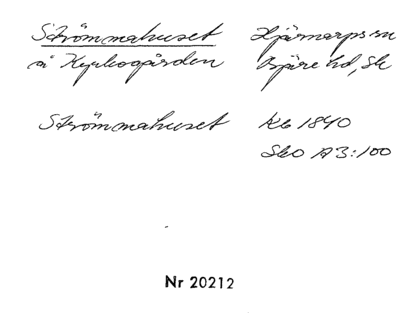 Strömmahuset Hjärnarps sn
å Kyrkogården Bjäre hd, Sk
Strömmahuset Kb 1840
Sko A3:100
Nr 20212